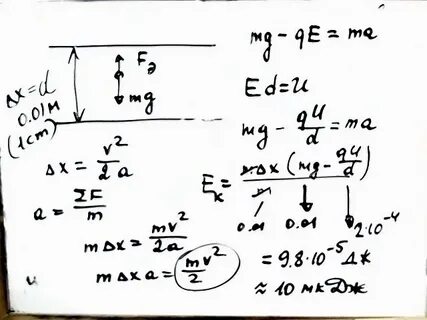 Δx=d
0.01м
(1cm)
F∂
mg
Δx = v²/2a
a = ΣF/m
mΔx = mv²/2a
mΔxa = mv²/2
mg - qE = ma
Ed = U
mg - qU/d = ma
Eк = m·Δx (mg - qU/d) / m
0.01 0.01 2·10⁻⁴
= 9.8·10⁻⁵ Дж
≈ 10 мкДж